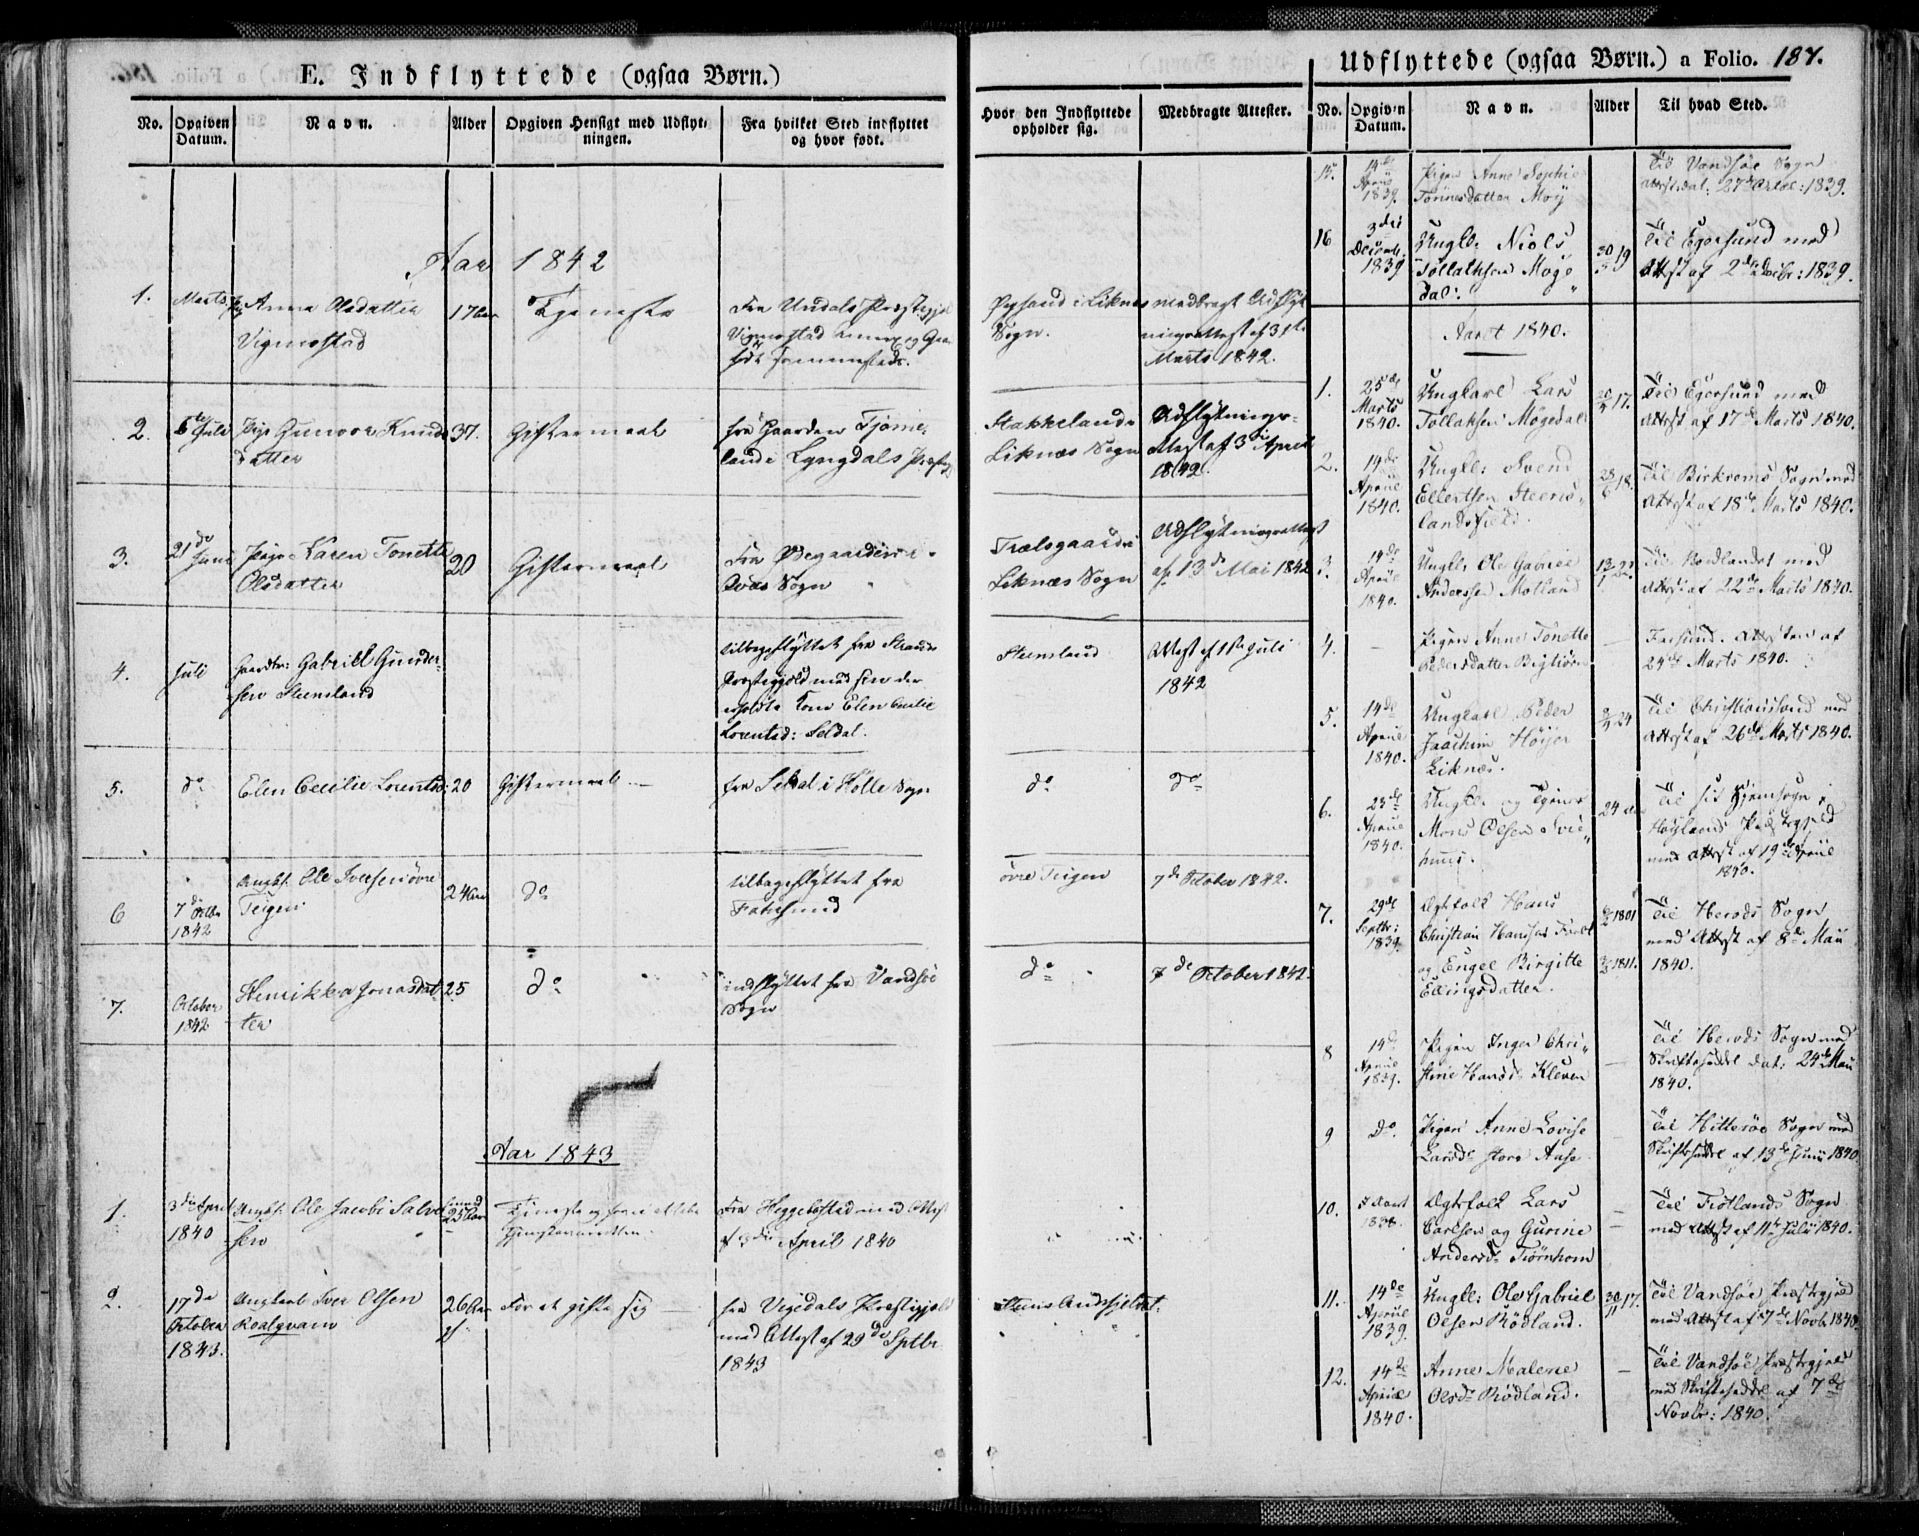 E. Indflyttede (ogsaa Børn.)
No.
Opgiven
Datum.
Navn.
Alder
Opgiven Hensigt med Udflyt-
ningen.
Fra hvilket Sted indflyttet
og hvor født.
Hvor den Indflyttede
opholder sig.
Medbragte Attester.
Aar 1842
1.
Marts
Anna Olsdatter
Vigmostad
17 Aar
Tjeneste
Fra Undals Præstegjel
Vigmostad Annex og
født sammesteds.
i Liknes
Sogn.
medbragt Udflyt
ningsattest af 31te
Marts 1842.
2.
Juli
Pige Gunvor Knuds
datter
37.
Giftermaal
fra Gaarden
Lyngdals
Stakkeland i
Liknæs Sogn
Udflytnings-
Attest af 3die April
1842.
3.
21de
Juni
Pige Karen Tonette
Olsdatter
20
Giftermaal
Fra Ødegaarden
Qvas Sogn
Trælsgaard i
Liknæs Sogn
Udflytningsattest
af 13de Mai 1842
4.
Juli
Gabriel Gunder-
sen Steensland
tilbageflyttet fra
Præstegjeld med sin
Kone Elen Cecilie
Lorentsd: Seldal.
Steensland
Attest af 1ste Juli
1842
5.
do
Elen Cecilie Lorentsd:
20
Giftermaal
fra Seldal i Holle Sogn
do
do
6
7de Octbr
1842
Ungk. Ole Iversen øvre
Teigen
24 Aar
do
tilbageflyttet fra
Farsund
øvre Teigen
7de October 1842.
7.
October
1842
Henrikka Jonasdat-
ter
25
do
indflyttet fra Vandsøe
Sogn
do
7de October 1842.
Aar 1843
1.
3die April
1840
Ungk. Ole Jacob Salve
sen
25 Aar
Fra Heggebostad med Attest
af
April 1840
2.
17de
October
1843.
Ungkarl Iver Olsen
Roalqvam
26 Aar
For at gifte sig
fra Vigedals Præstegjeld
med Attest af 29de Septbr
1843
Udflyttede (ogsaa Børn.) a Folio. 187.
No.
Opgiven
Datum.
Navn.
Alder
Til hvad Sted.
15.
14de
April
1839.
Pigen Anne Sophie
Tønnesdatter Moy
Til Vandsøe Sogn
Attest dat: 27de Octbr: 1839.
16
3die
Decemb.
1839
Ungk: Niels
Tollaksen Møge
dal.
30/5 19
Til Egersund med
Attest af 2den Decbr: 1839.
Aaret 1840.
1.
25de
Marts
1840.
Ungkarl Lars
Tollaksen Møgedal
17.
Til Egersund med
Attest af 17de Marts 1840.
2.
14de
April
1840.
Ungk: Svend
Ellertsen Steens-
landsfield.
18.
Til Birkrems Sogn med
Attest af 18de Marts 1840.
3.
14de
April
1840.
Ungk: Ole Gabriel
Anderssen Motland
Til Nordlandet med
Attest af 22de Marts 1840.
4.
Pigen Anne Tonette
Pedersdatter
Farsund. Attesten af
24de Marts 1840.
5.
14de
April
1840.
Ungkarl Peder
Joachim Høyer
Liknæs.
24
Til Christianssand med
Attest af 26de Marts 1840.
6.
23de
April
1840.
Ungk. og Tjener
Mons Olsen Svie-
huus.
24 Aar
Til sit Hjemsogn i
Høylands Præstegjeld
med Attest af 19de April
1840.
7.
29de
Septbr:
1839.
Ægtefolk Hans
Christian Hansen
og Engel Birgitte
Ellingsdatter.
1801
1811.
Til Herods Sogn
med Attest af 8de Maii
1840.
8
14de
April
1839.
Pigen Inger Chri-
stine Hansd. Kleven
Til Herods Sogn med
Skriftseddel dat: 24de Maii
1840.
9
Do.
Pigen Anne Lovise
Larsd. store Aase
Til Hitterøe Sogn med
Skriftseddel af 13de Junii 1840.
10.
1838.
Ægtefolk Lars
Carlsen og Gurine
Andersd. Tiørnhom
Til Fiotlands Sogn
med Attest af 11te Julii 1840.
11.
14de
April
1839.
Ungk: Ole Gabriel
Olsen Rödland.
30/11 17.
Til Vandsøe Præstegjeld
med Attest af 7de Novbr 1840.
12.
14de
April
1840.
Anne Malene
Olsd. Rödland.
Til Vandsøe Præstegjeld
med Skriftseddel af 7de
Novbr: 1840.